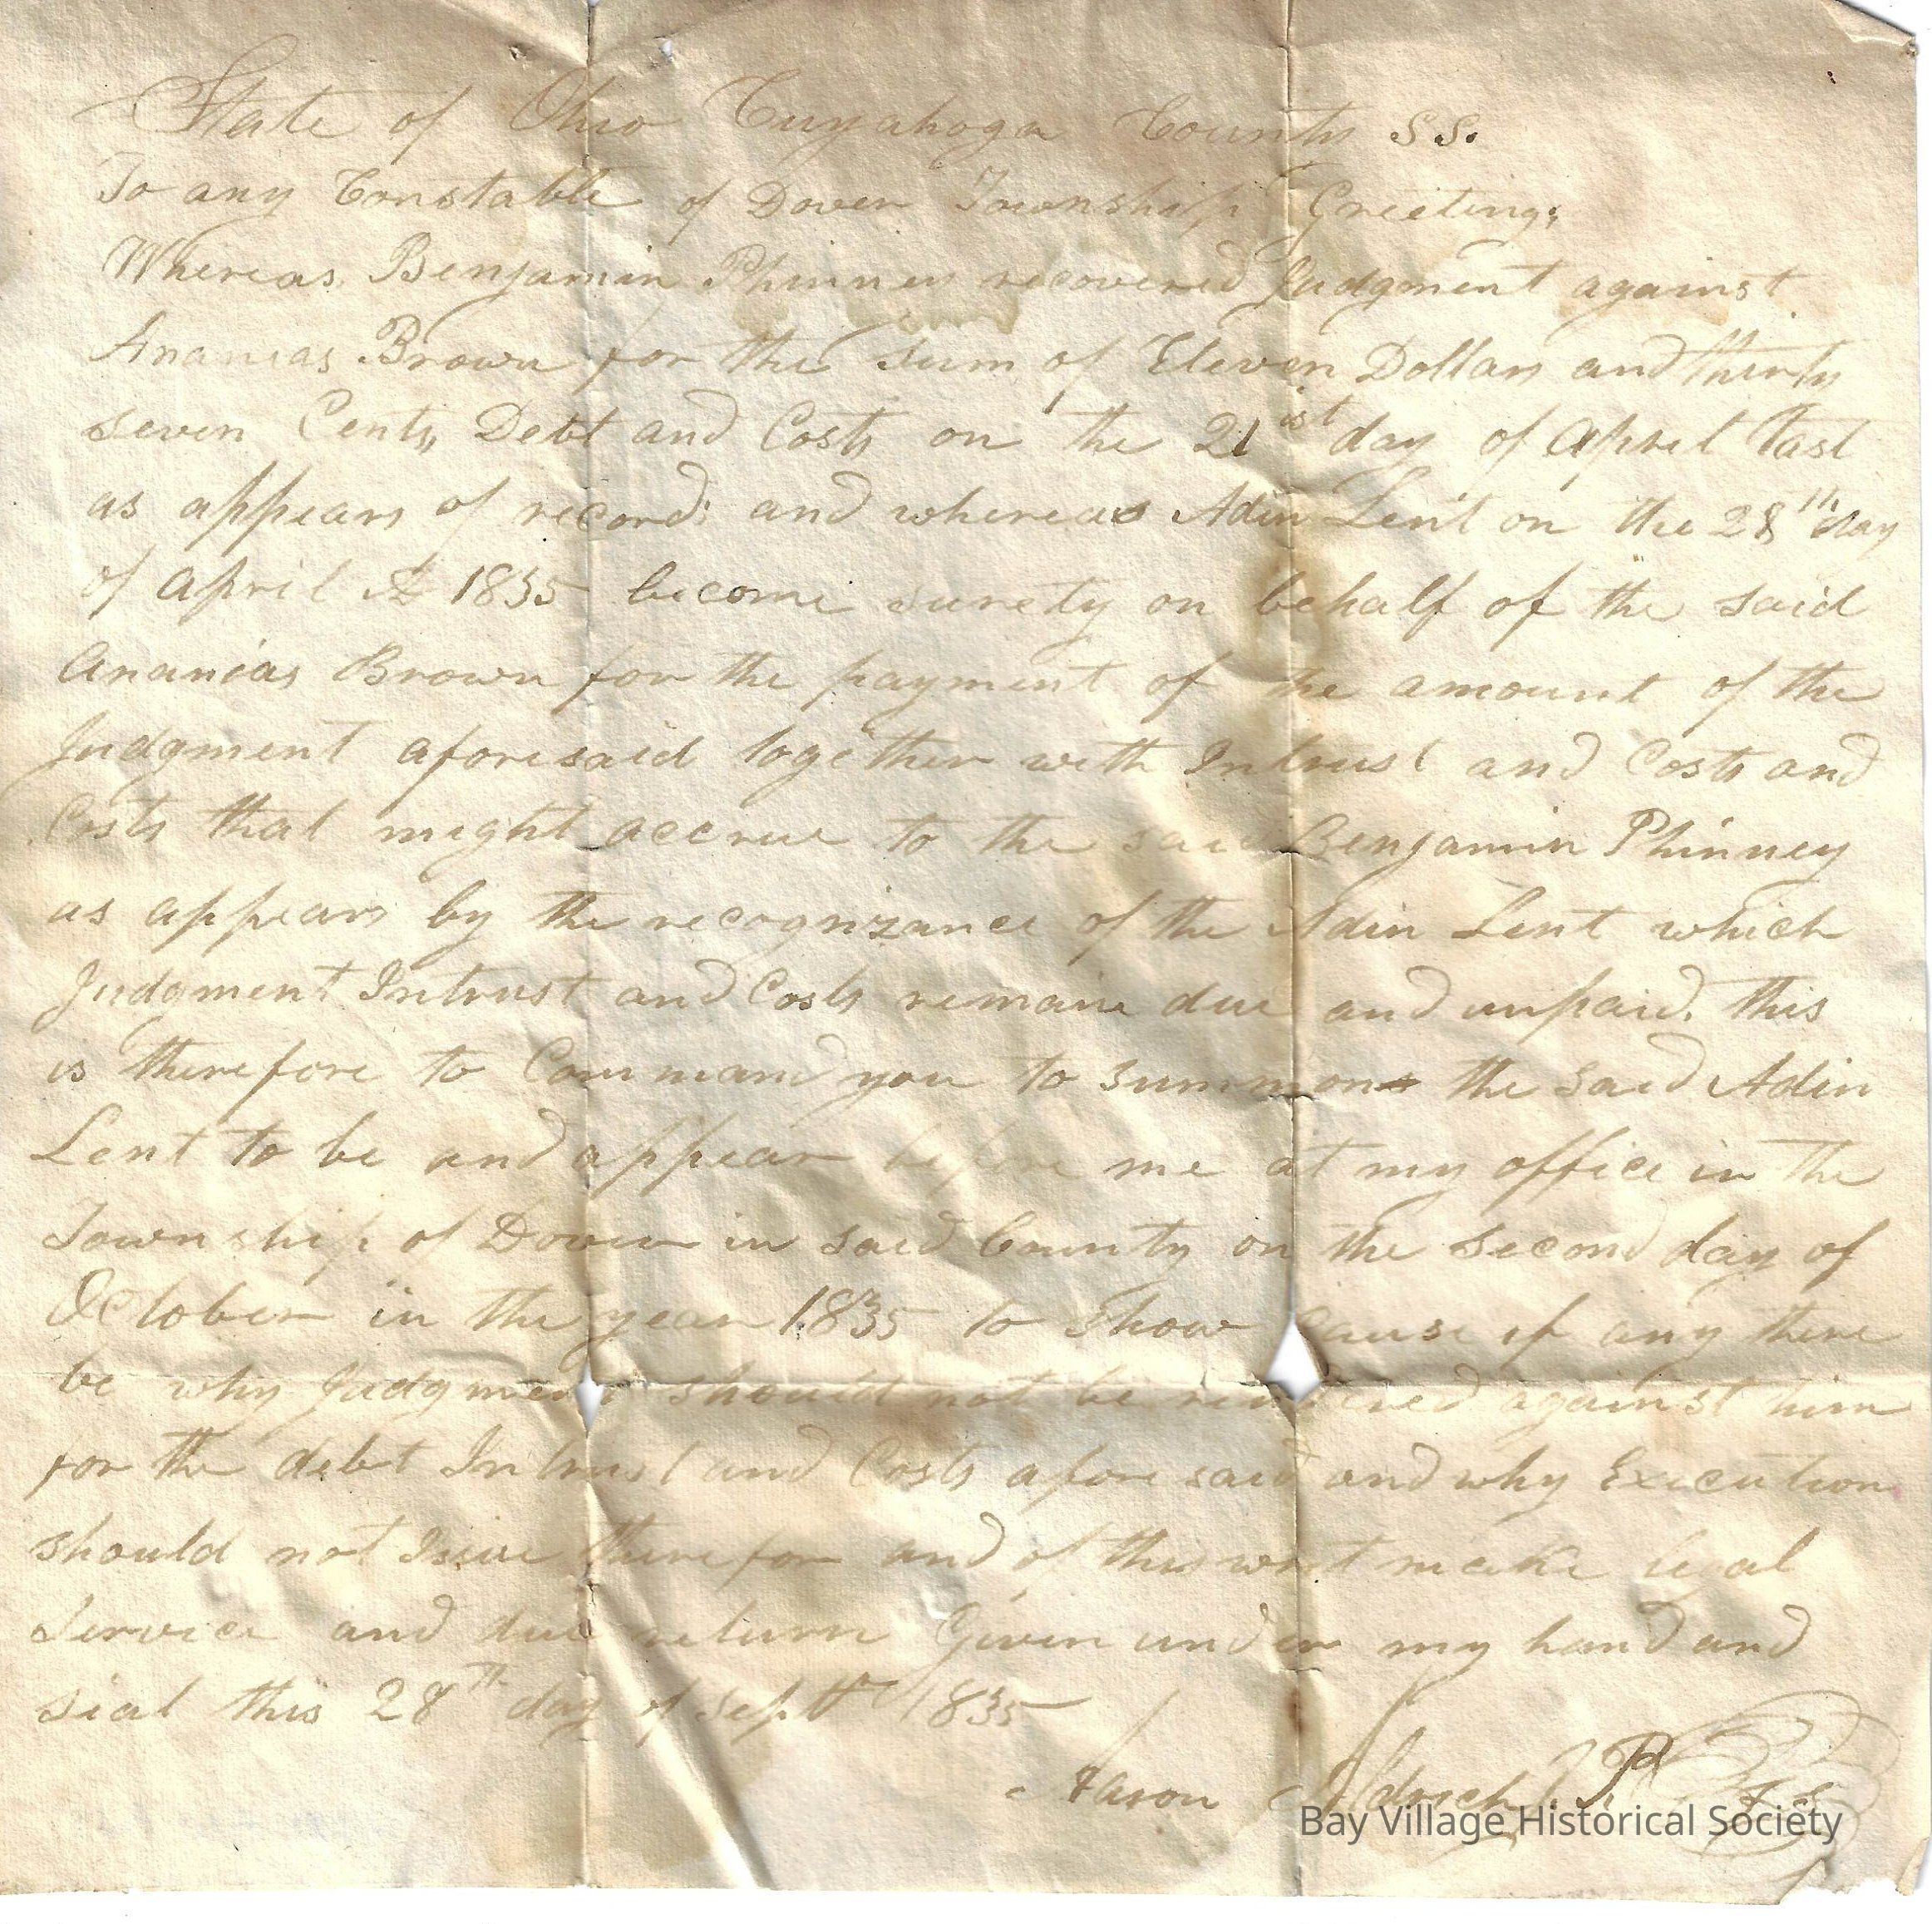 State of Ohio Cuyahoga County SS.
To any Constable of Dover Township Greeting,
Whereas Benjamin Phinney recovered Judgment against
Ananias Brown for the sum of Eleven Dollars and thirty
seven Cents, Debt and Costs on the 21st day of April last
as appears of record; and whereas Adin Lent on the 28th day
of April AD 1835 become surety on behalf of the said
Ananias Brown for the payment of the amount of the
Judgment aforesaid together with Intrust and Costs and
Costs that might accrue to the said Benjamin Phinney
as appears by the recognizance of the Adin Lent which
Judgment Intrust and Costs remain due and unpaid. this
is therefore to Command you to summon the said Adin
Lent to be and appear before me at my office in the
Township of Dover in said County on the second day of
October in the year 1835 to show cause if any there
be why Judgment should not be rendered against him
for the debt Intrust and Costs afore said and why Execution
should not Issue therefor and of this writ make legal
Service and due return Given under my hand and
seal this 28th day of Sept 1835
Aaron Aldrich J.P.
Bay Village Historical Society